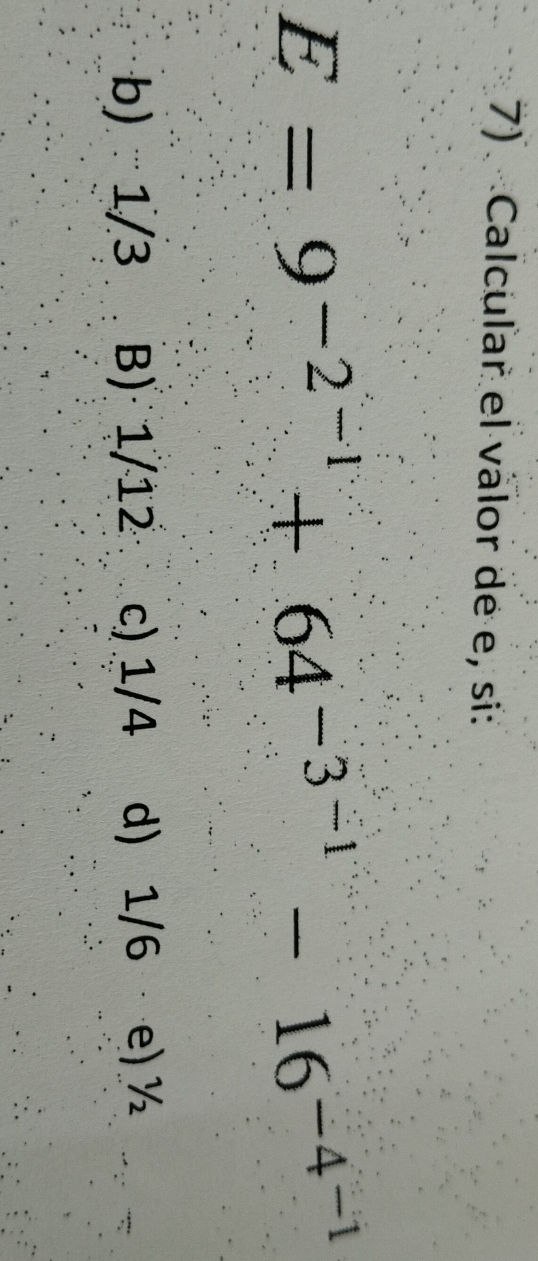 7) Calcular el valor de e, si:
E = 9^{-2^{-1}} + 64^{-3^{-1}} - 16^{-4^{-1}}
b) 1/3 B) 1/12 c) 1/4 d) 1/6 e) ½